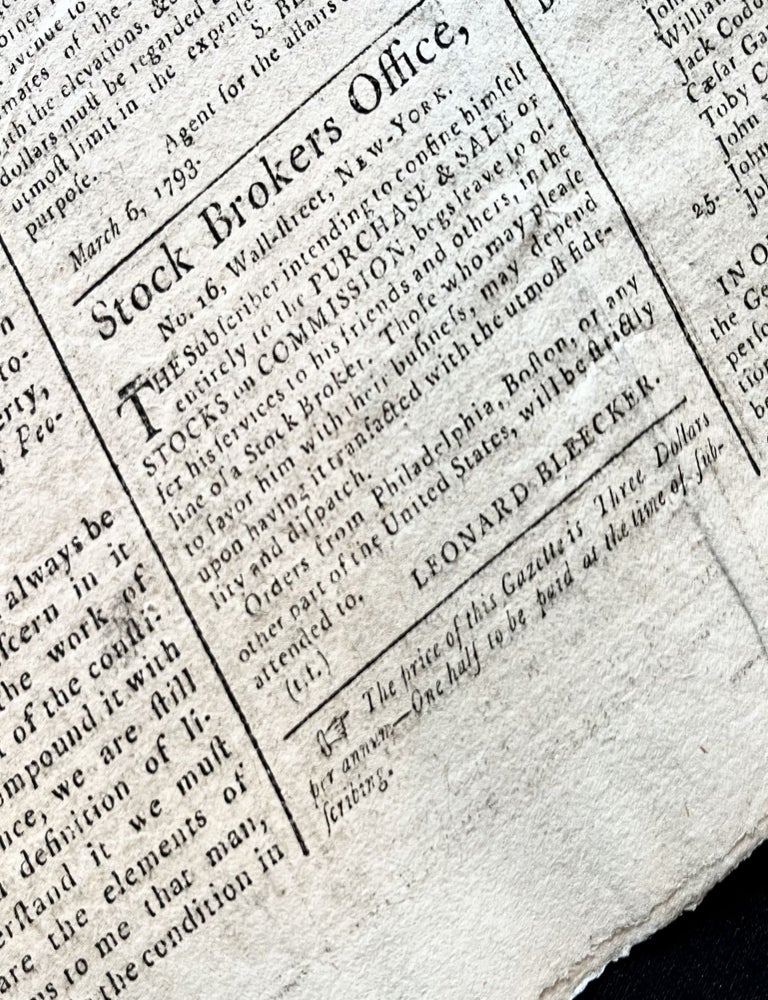 orner
avenue to
mares of the
ith the elevations, &c
dollars must be regarded
utmost limit in the expense
purpose. S. BL
Agent for the affairs
March 6, 1793.
Stock Brokers Office,
No. 16, Wall-ſtreet, NEW-YORK.
THE Subſcriber intending to confine himſelf
entirely to the PURCHASE & SALE OF
STOCKS on COMMISSION, begs leave to of-
fer his ſervices to his friends and others, in the
line of a Stock Broker. Thoſe who may pleaſe
to favor him with their buſineſs, may depend
upon having it tranſacted with the utmoſt fide-
lity and diſpatch.
Orders from Philadelphia, Boſton, or any
other part of the United States, will be ſtrictly
attended to.
LEONARD BLEECKER.
(t.f.)
☞ The price of this Gazette is Three Dollars
per annum—One half to be paid at the time of ſub-
ſcribing.
n
to-
erty,
Peo-
always be
ſcern in it
the work of
of the conſti-
ompound it with
nce, we are ſtill
definition of li-
erſtand it we muſt
are the elements of
ms to me that man,
the condition in
John
William
Jack Codd
Cæſar Ga
Toby C
John
John
25. John
IN O
the Ge
perſo
tion
be